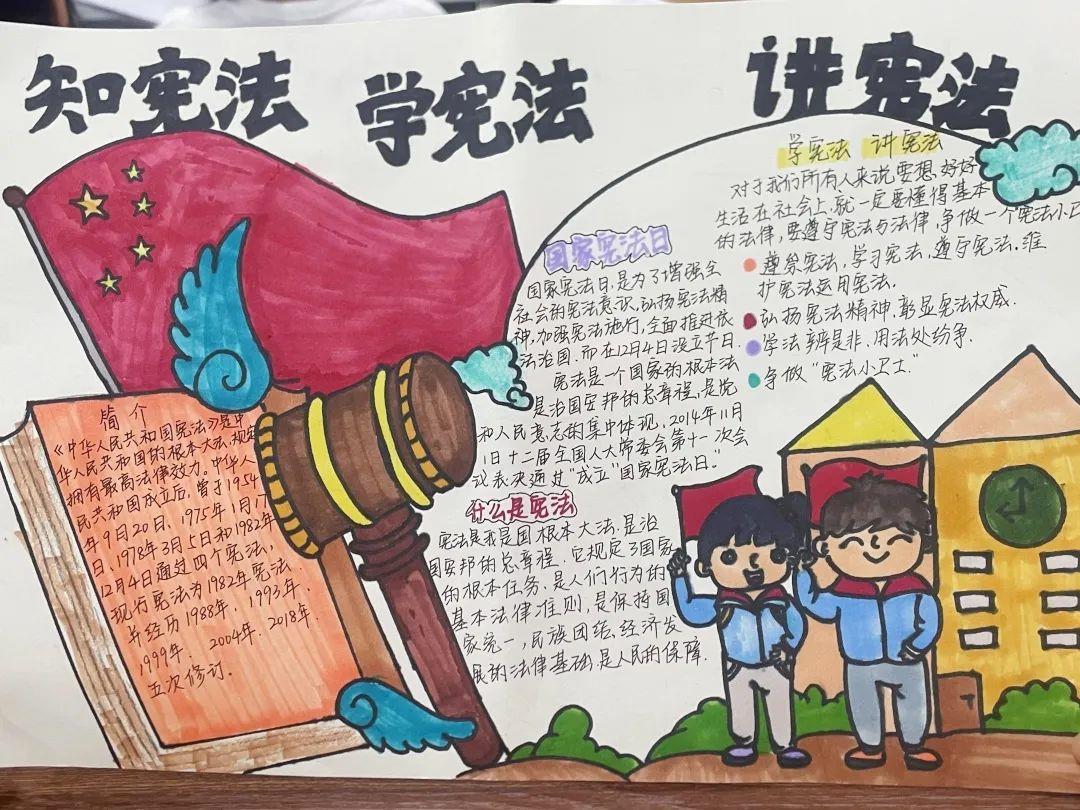 知宪法 学宪法 讲宪法
简介
《中华人民共和国宪法》是中
华人民共和国的根本大法,规定
拥有最高法律效力。中华人
民共和国成立后,曾于1954
年9月20日、1975年1月17
日、1978年3月5日和1982年
12月4日通过四个宪法,
现行宪法为1982年宪法,
并经历1988年、1993年、
1999年、2004年、2018年、
五次修订.
国家宪法日
国家宪法日,是为了增强全
社会的宪法意识,弘扬宪法精
神,加强宪法施行,全面推进依
法治国,而在12月4日设立节日.
宪法是一个国家的根本法
是治国安邦的总章程,是党
和人民意志的集中体现,2014年11月
1日十二届全国人大常委会第十一次会
议表决通过“成立”国家宪法日."
什么是宪法
宪法是我是国根本大法,是治
国安邦的总章程,它规定了国家
的根本任务,是人们行为的
基本法律准则,是保持国
家统一,民族团结,经济发
展的法律基础,是人民的保障.
学宪法 讲宪法
对于我们所有人来说要想,好好
生活在社会上,就一定要懂得基本
的法律,要遵守宪法与法律,争做一个宪法小卫
遵崇宪法,学习宪法,遵守宪法,维
护宪法运用宪法.
弘扬宪法精神,彰显宪法权威.
学法辨是非,用法处纷争.
争做“宪法小卫士."